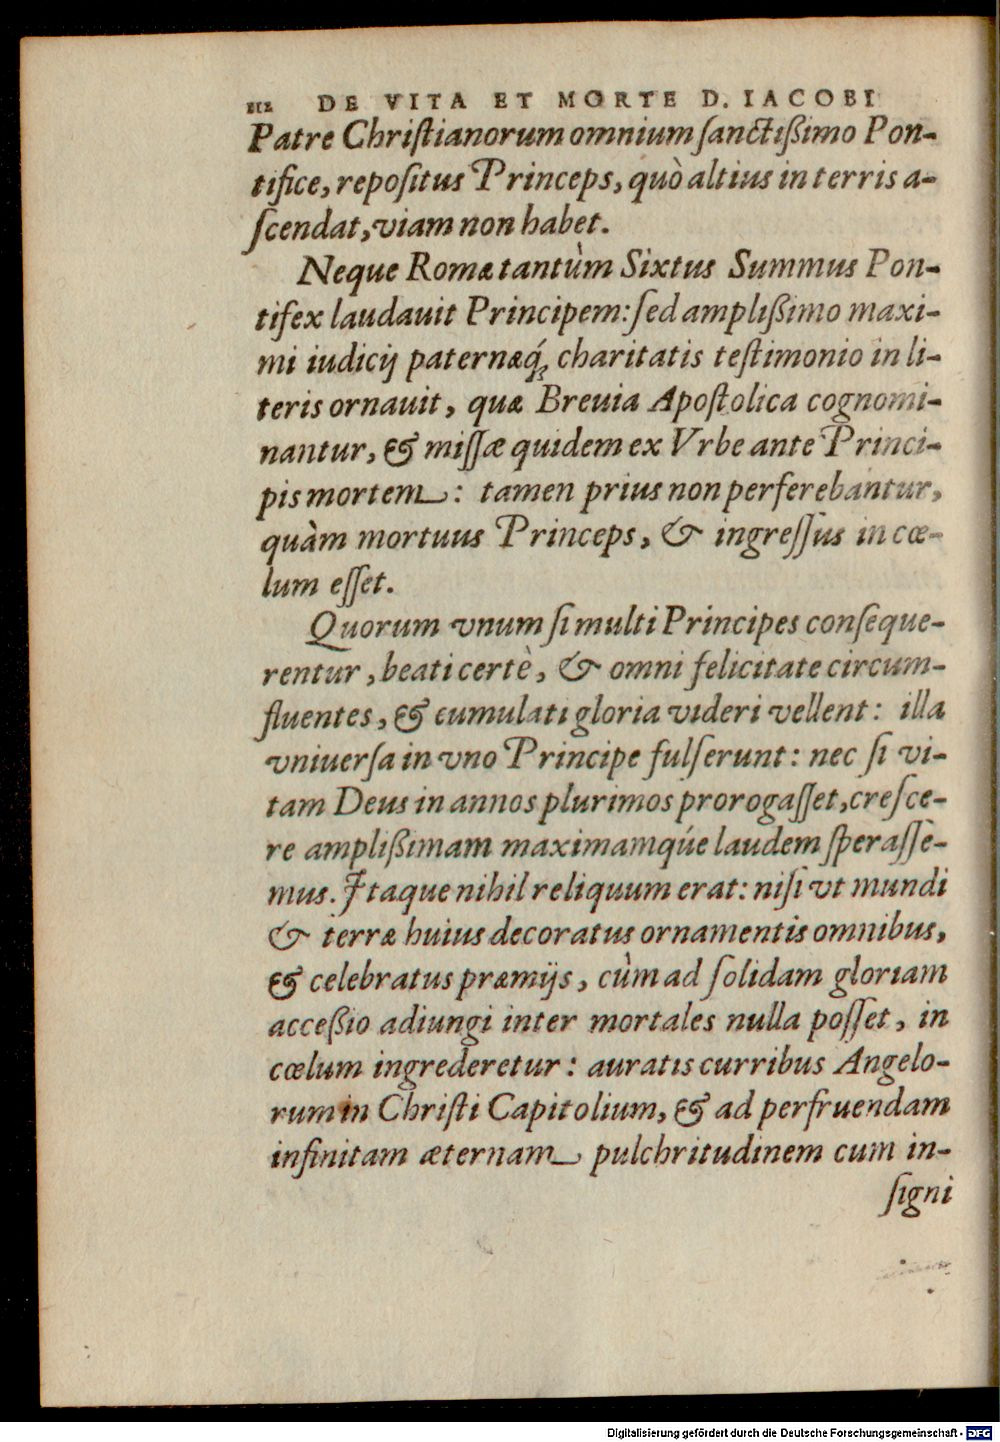 112 DE VITA ET MORTE D. IACOBI
Patre Chriſtianorum omnium ſanctißimo Pon-
tifice, repoſitus Princeps, quò altius in terris a-
ſcendat, viam non habet.
Neque Romæ tantùm Sixtus Summus Pon-
tifex laudauit Principem: ſed amplißimo maxi-
mi iudicij paternæq́; charitatis teſtimonio in li-
teris ornauit, quæ Breuia Apoſtolica cognomi-
nantur, & miſſæ quidem ex Vrbe ante Princi-
pis mortem: tamen prius non perferebantur,
quàm mortuus Princeps, & ingreſſus in cœ-
lum eſſet.
Quorum vnum ſi multi Principes conſeque-
rentur, beati certè, & omni felicitate circum-
fluentes, & cumulati gloria videri vellent: illa
vniuerſa in vno Principe fulſerunt: nec ſi vi-
tam Deus in annos plurimos prorogaſſet, creſce-
re amplißimam maximamq́ue laudem ſperaſſe-
mus. Itaque nihil reliquum erat: niſi vt mundi
& terræ huius decoratus ornamentis omnibus,
& celebratus præmijs, cùm ad ſolidam gloriam
acceßio adiungi inter mortales nulla poſſet, in
cœlum ingrederetur: auratis curribus Angelo-
rum in Chriſti Capitolium, & ad perfruendam
infinitam æternam pulchritudinem cum in-
ſigni
Digitalisierung gefördert durch die Deutsche Forschungsgemeinschaft - DFG